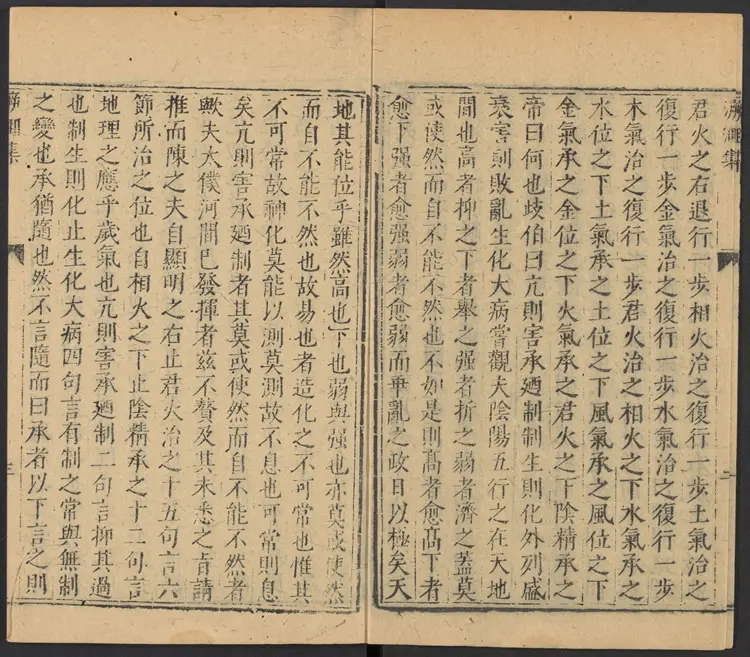 溯洄集
君火之右退行一步相火治之復行一步土氣治之
復行一步金氣治之復行一步水氣治之復行一步
木氣治之復行一步君火治之相火之下水氣承之
水位之下土氣承之土位之下風氣承之風位之下
金氣承之金位之下火氣承之君火之下陰精承之
帝曰何也歧伯曰亢則害承廼制制生則化外列盛
衰害則敗亂生化大病嘗觀夫陰陽五行之在天地
間也高者抑之下者舉之强者折之弱者濟之蓋莫
或使然而自不能不然也不如是則髙者愈髙下者
愈下强者愈强弱者愈弱而乖亂之政日以極矣天
地其能位乎雖然高也下也弱與强也亦莫或使然
而自不能不然也故易也者造化之不可常也惟其
不可常故神化莫能以測莫測故不息也可常則息
矣亢則害承廼制者其莫或使然而自不能不然者
歟夫太僕河間已發揮者兹不贅及其未悉之旨請
推而陳之夫自顯明之右止君火治之十五句言六
節所治之位也自相火之下止陰精承之十二句言
地理之應乎歲氣也亢則害承廼制二句言抑其過
也制生則化止生化大病四句言有制之常與無制
之變也承猶隨也然不言隨而曰承者以下言之則
溯洄集